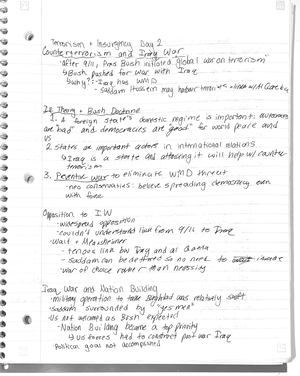 Terrorism + Insurgency Day 2
Counterterrorism and Iraq War
- After 9/11, Pres Bush initiated "global war on terrorism"
↳ Bush pushed for war with Iraq
↳ Why?: - Iraq has WMD
- Saddam Hussein may harbor
+ Bush Doctrine
1. A foreign state's domestic regime is important: autocracies
are "bad" and democracies are "good" for world peace and
US
2. States are important actors in international relations
↳ Iraq is a state and attacking it will help w/ counter-
terrorism.
3. Preventive war to eliminate WMD threat
- neo conservatives: believe spreading democracy even
with force
Opposition to IW
- widespread opposition
- couldn't understand link from 9/11 to Iraq
- Walt + Mearsheimer
- tenuous link b/w Iraq and al Qaeda
- Saddam can be deterred so no need to
war of choice rather than necessity
Iraq War and Nation Building
- military operation to take Baghdad was relatively swift
- Saddam surrounded by "yes men"
- US not welcomed as Bush expected
- Nation Building became a top priority
↳ US had to construct post war Iraq
Political goal not accomplished